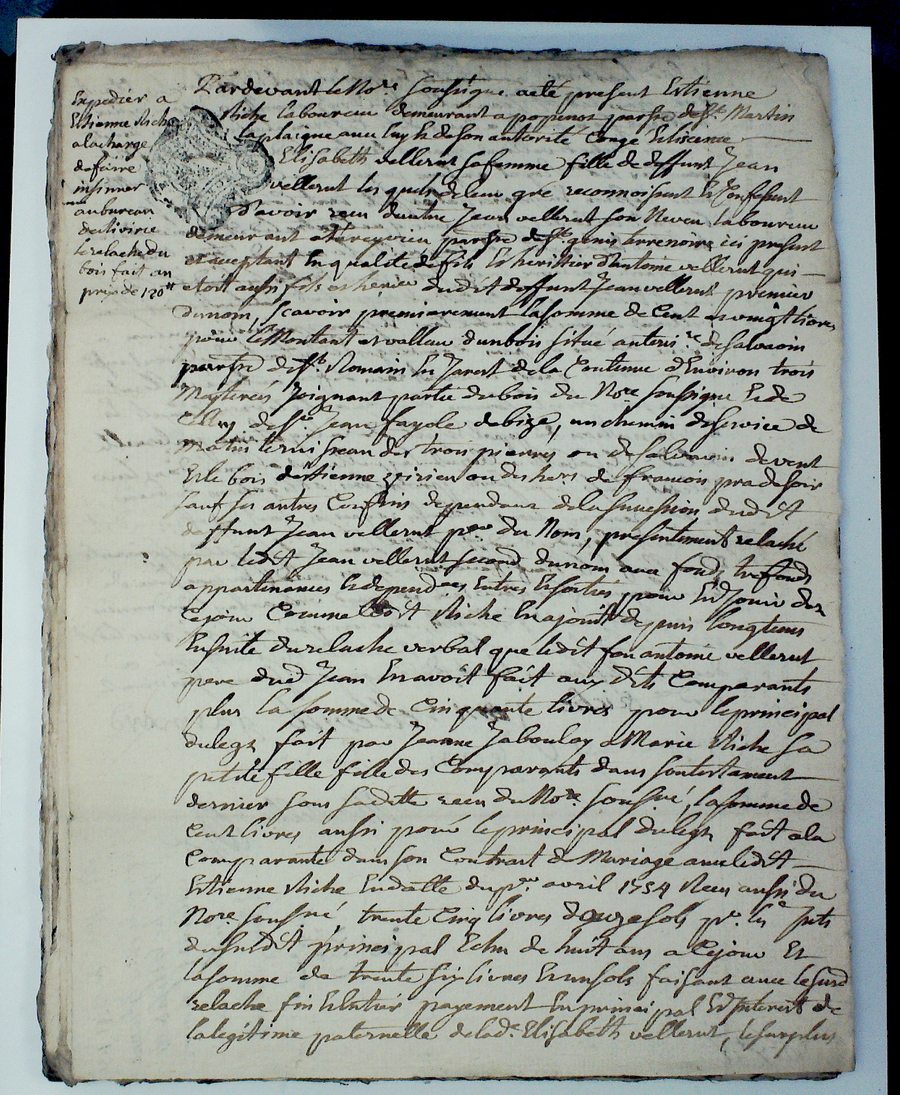 Expedier a
Estienne Riche
a la charge
de faire
insinuer
au bureau
de
le relache du
bois fait au
prix de 120 tt
Pardevant le Nore soussigne a eté present Estienne
Riche laboureur demeurant a popenot parsse de St Martin
laplaigne avec luy & de son autorité Congé & licence
Elisabeth vellerut sa femme fille de deffunt Jean
vellerut les quels de leur gré reconnoissent & Confessent
d'avoir reçu d'autre Jean vellerut son Neveu laboureur
demeurant parsse de St genis terrenoire ici present
et acceptant En qualité de fils & heritier d'antoine vellerut qui
etoit aussi fils et heritier dudit deffunt Jean vellerut premier
du nom, scavoir premierement la somme de Cent et vingt livres
pour le Montant et valleur d'un bois situé au terrire de salvaoin
parsse de St Romain En Jarest de la Contenue d'Environ trois
Mestereés Joignant partie du bois du Nore soussigne & de
Celluy de sr Jean fayole de bize, un chemin de service de
matin le ruisseau des trois pierres ou de de vent
Et le bois d'estienne ou des hers de francois de soir
sauf ses autres Confins dependant de la sucession dudit
deffunt Jean vellerut per du Nom, presentement relaché
par ledit Jean vellerut second du nom aux fonds trefonds
appartinances & dependces Entrés & sortiés pour En Jouir dez
Cejour Comme ledit Riche En a joüit depuis longtems
Ensuite du relache verbal que ledit feu antoine vellerut
pere dud Jean En avoit fait aux dits Comparants
plus la somme de Cinquante livres pour le principal
du legs fait par Jeanne Jaboulay a Marie Riche sa
petite fille fille des Comparants dans son testament
dernier sous sa datte reçu du Nore soussné, la somme de
Cent livres aussi pour le principal du legs fait a la
Comparante dans son Contrat de Mariage avec ledit
Estienne Riche En datte du per avril 1754 Reçu aussi du
Nore soussné trente Cinq livres douze sols pr les Jnts
du susdit principal Echu de huit ans a Cejour Et
la somme de trente six livres & un sols faisant avec le susd
relache fin & Entier payement En principal & Jnterest de
la legitime paternelle de lade Elisabeth vellerut, le surplus